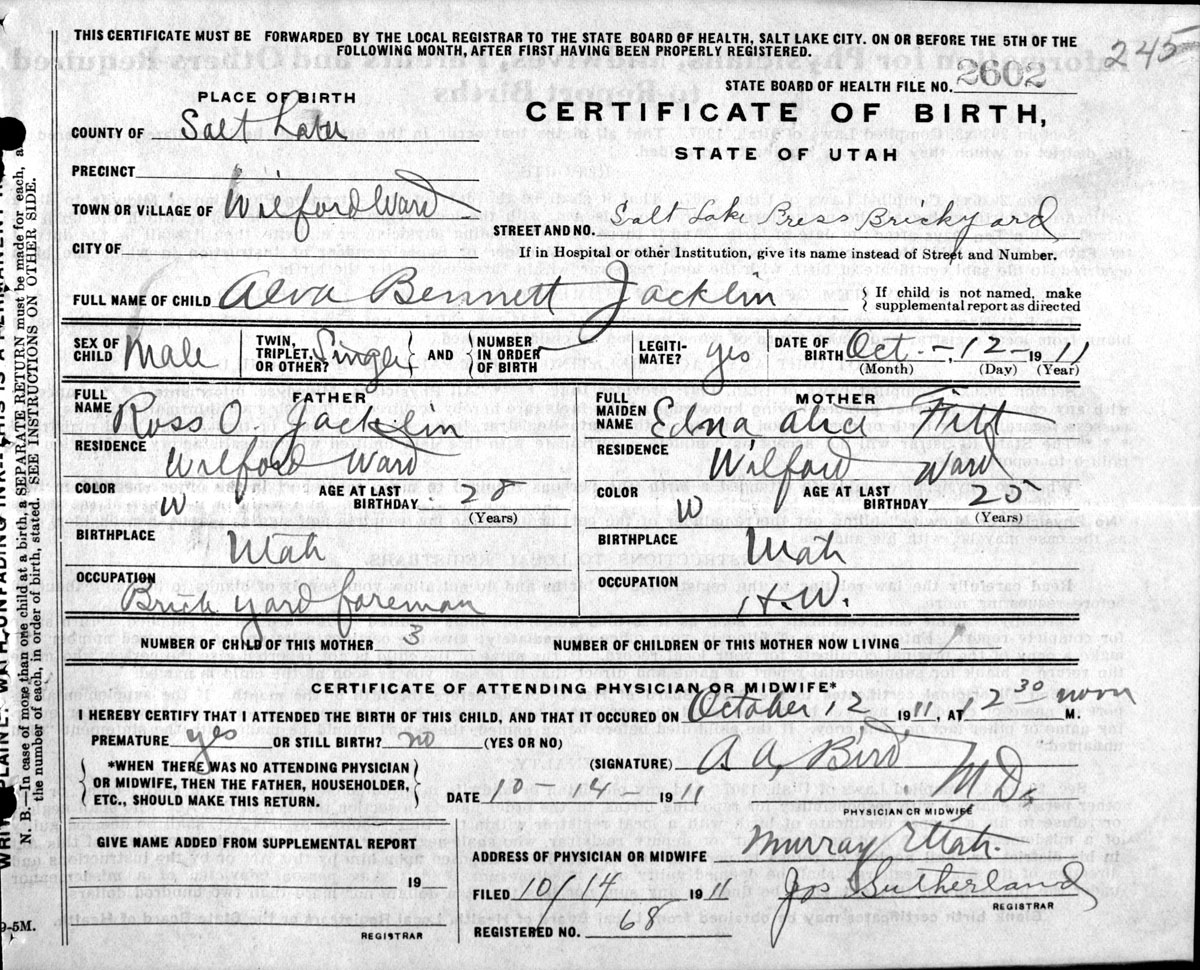 THIS CERTIFICATE MUST BE FORWARDED BY THE LOCAL REGISTRAR TO THE STATE BOARD OF HEALTH, SALT LAKE CITY. ON OR BEFORE THE 5TH OF THE
FOLLOWING MONTH, AFTER FIRST HAVING BEEN PROPERLY REGISTERED.
245
STATE BOARD OF HEALTH FILE NO. 2602
PLACE OF BIRTH
CERTIFICATE OF BIRTH,
STATE OF UTAH
COUNTY OF Salt Lake
PRECINCT
TOWN OR VILLAGE OF Wilford Ward
STREET AND NO. Salt Lake Press Brickyard
CITY OF
If in Hospital or other Institution, give its name instead of Street and Number.
FULL NAME OF CHILD Alva Bennett Jacklin
If child is not named, make
supplemental report as directed
SEX OF CHILD Male TWIN, TRIPLET, OR OTHER? Single AND NUMBER IN ORDER OF BIRTH LEGITI-MATE? yes DATE OF BIRTH Oct. - 12 - 1911
(Month) (Day) (Year)
FATHER
FULL NAME Ross Jacklin
RESIDENCE Wilford Ward
COLOR W AGE AT LAST BIRTHDAY 28
(Years)
BIRTHPLACE Utah
OCCUPATION
Brick yard foreman
MOTHER
FULL MAIDEN NAME Edna Alice Fitt
RESIDENCE Wilford Ward
COLOR W AGE AT LAST BIRTHDAY 25
(Years)
BIRTHPLACE Utah
OCCUPATION H.W.
NUMBER OF CHILD OF THIS MOTHER 3 NUMBER OF CHILDREN OF THIS MOTHER NOW LIVING
CERTIFICATE OF ATTENDING PHYSICIAN OR MIDWIFE*
I HEREBY CERTIFY THAT I ATTENDED THE BIRTH OF THIS CHILD, AND THAT IT OCCURED ON October 12 1911, AT 12 30 noon M.
PREMATURE yes OR STILL BIRTH? no (YES OR NO)
(SIGNATURE) A A, Bird M D,
*WHEN THERE WAS NO ATTENDING PHYSICIAN
OR MIDWIFE, THEN THE FATHER, HOUSEHOLDER,
ETC., SHOULD MAKE THIS RETURN.
DATE 10-14 1911
PHYSICIAN OR MIDWIFE
GIVE NAME ADDED FROM SUPPLEMENTAL REPORT
19
REGISTRAR
ADDRESS OF PHYSICIAN OR MIDWIFE Murray Utah.
FILED 10/14 1911 Jos Sutherland
REGISTRAR
REGISTERED NO. 68
9-5M.
N. B.—In case of more than one child at a birth, a SEPARATE RETURN must be made for each, a
the number of each, in order of birth, stated. SEE INSTRUCTIONS ON OTHER SIDE.